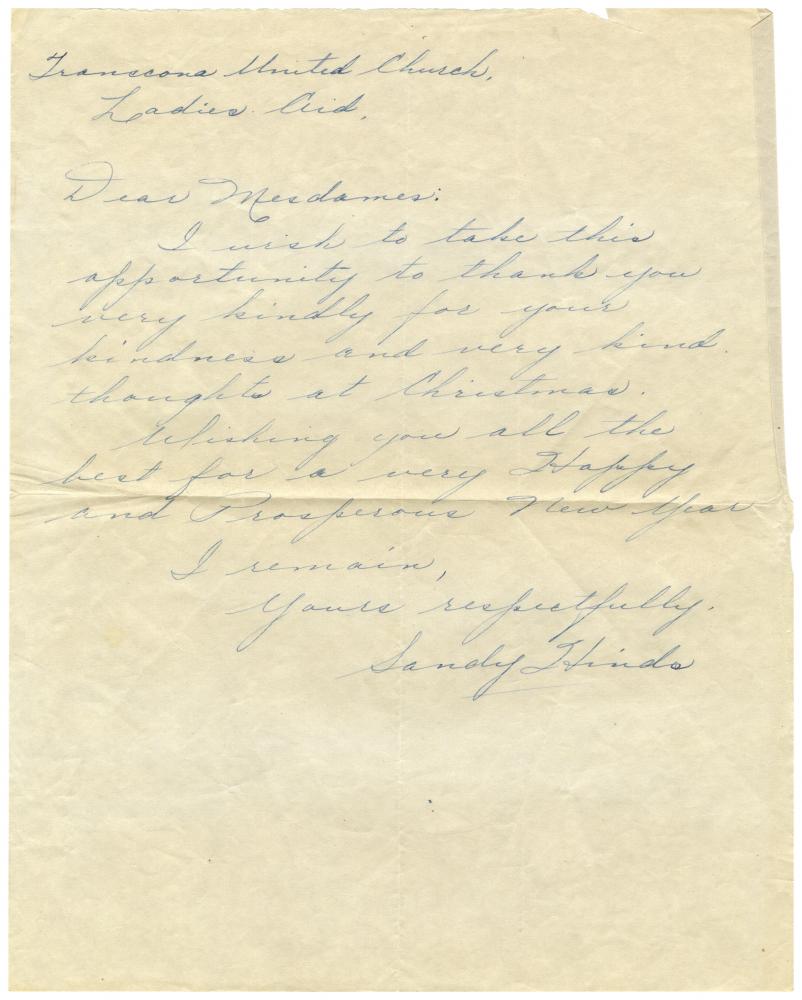 Transcona United Church,
Ladies Aid,
Dear Mesdames:
I wish to take this
opportunity to thank you
very kindly for your
kindness and very kind
thoughts at Christmas.
Wishing you all the
best for a very Happy
and Prosperous New Year
I remain,
Yours respectfully.
Sandy Hinds